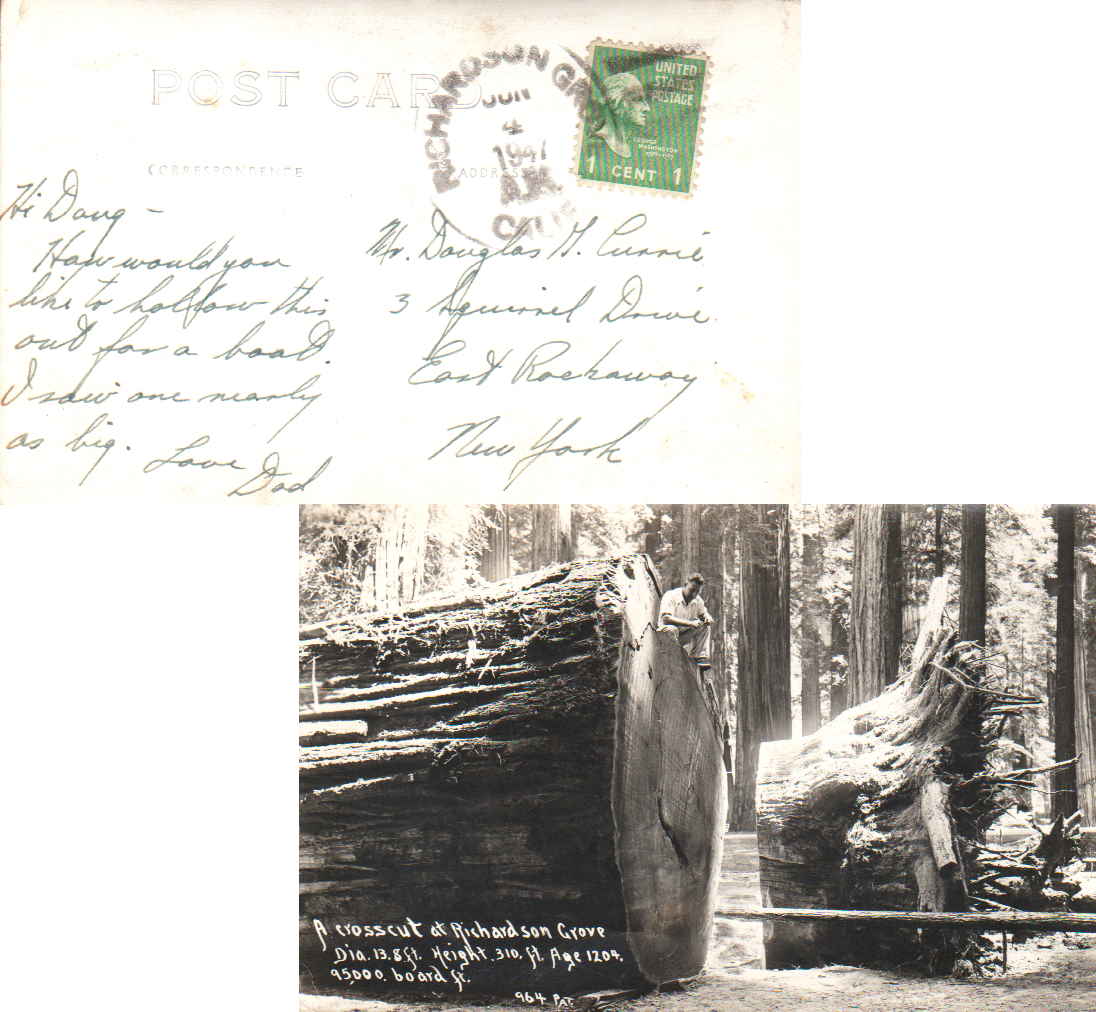 POST CARD
RICHARDSON GR
JUN
4
1947
A.M.
CALIF
UNITED
STATES
POSTAGE
GEORGE
WASHINGTON
1 CENT 1
CORRESPONDENCE
ADDRESS
Hi Doug -
How would you
like to hollow this
out for a boat.
I saw one nearly
as big. Love
Dad
Mr. Douglas G. Currie
3 Squirrel Drive.
East Rockaway
New York
A crosscut at Richardson Grove
Dia. 13.8 ft. Height. 310. ft. Age 1204.
95000. board ft.
964 PAT.